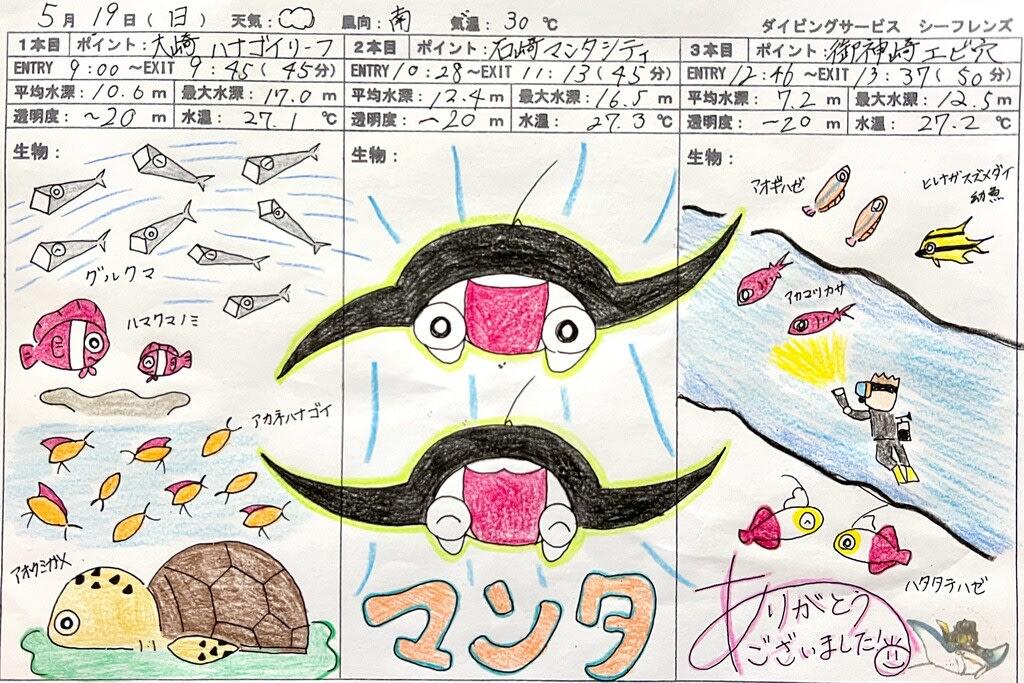 5月19日(日) 天気: 風向:南 気温:30℃
ダイビングサービス シーフレンズ
1本目 ポイント:大崎 ハナゴイリーフ
ENTRY 9:00 ~EXIT 9:45(45分)
平均水深:10.6m 最大水深:17.0m
透明度:~20m 水温:27.1℃
生物:
グルクマ
ハマクマノミ
アカネハナゴイ
アオウミガメ
2本目 ポイント:石崎マンタシティ
ENTRY 10:28~EXIT 11:13(45分)
平均水深:12.4m 最大水深:16.5m
透明度:~20m 水温:27.3℃
生物:
マンタ
3本目 ポイント:御神崎エビ穴
ENTRY 12:46~EXIT 13:37(50分)
平均水深:7.2m 最大水深:12.5m
透明度:~20m 水温:27.2℃
生物:
アオギハゼ
ヒレナガスズメダイ
幼魚
アカマツカサ
ハタタテハゼ
ありがとう
ございました!